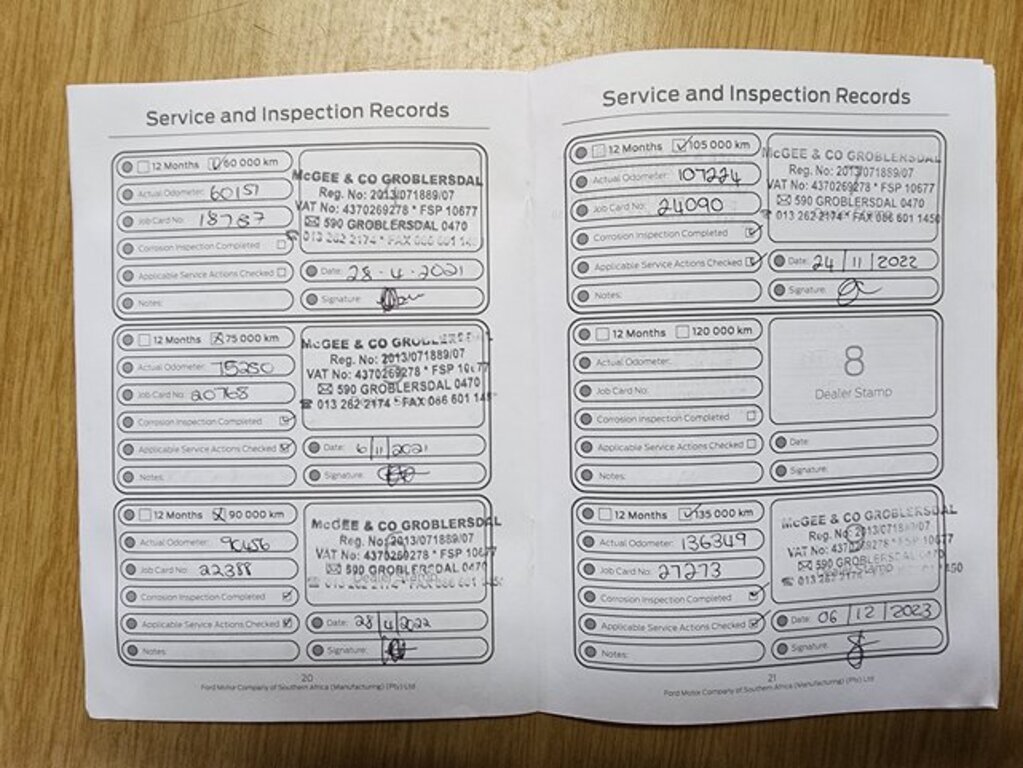 Service and Inspection Records
12 Months 60 000 km
Actual Odometer: 60157
Job Card No: 18787
Corrosion Inspection Completed
Applicable Service Actions Checked
Notes:
McGEE & CO GROBLERSDAL
Reg. No: 2013/071889/07
VAT No: 4370269278 * FSP 10677
590 GROBLERSDAL 0470
013 262 2174 * FAX 086 601 14
Date: 28.4.2021
Signature:
12 Months 75 000 km
Actual Odometer: 75250
Job Card No: 20768
Corrosion Inspection Completed
Applicable Service Actions Checked
Notes:
McGEE & CO GROBLERSDAL
Reg. No: 2013/071889/07
VAT No: 4370269278 * FSP 10677
590 GROBLERSDAL 0470
013 262 2174 * FAX 086 601 14
Date: 6/11/2021
Signature:
12 Months 90 000 km
Actual Odometer: 90456
Job Card No: 22388
Corrosion Inspection Completed
Applicable Service Actions Checked
Notes:
McGEE & CO GROBLERSDAL
Reg. No: 2013/071889/07
VAT No: 4370269278 * FSP 10677
590 GROBLERSDAL 0470
Dealer Stamp
Date: 28/4/2022
Signature:
20
Ford Motor Company of Southern Africa (Manufacturing) (Pty) Ltd
Service and Inspection Records
12 Months 105 000 km
Actual Odometer: 107224
Job Card No: 24090
Corrosion Inspection Completed
Applicable Service Actions Checked
Notes:
McGEE & CO GROBLERSDAL
Reg. No: 2013/071889/07
VAT No: 4370269278 * FSP 10677
590 GROBLERSDAL 0470
013 262 2174 * FAX 086 601 1450
Date: 24/11/2022
Signature:
12 Months 120 000 km
Actual Odometer:
Job Card No:
Corrosion Inspection Completed
Applicable Service Actions Checked
Notes:
8
Dealer Stamp
Date:
Signature:
12 Months 135 000 km
Actual Odometer: 136349
Job Card No: 27273
Corrosion Inspection Completed
Applicable Service Actions Checked
Notes:
McGEE & CO GROBLERSDAL
Reg. No: 2013/071889/07
VAT No: 4370269278 * FSP 10677
590 GROBLERSDAL 0470
Dealer Stamp
Date: 06/12/2023
Signature:
21
Ford Motor Company of Southern Africa (Manufacturing) (Pty) Ltd